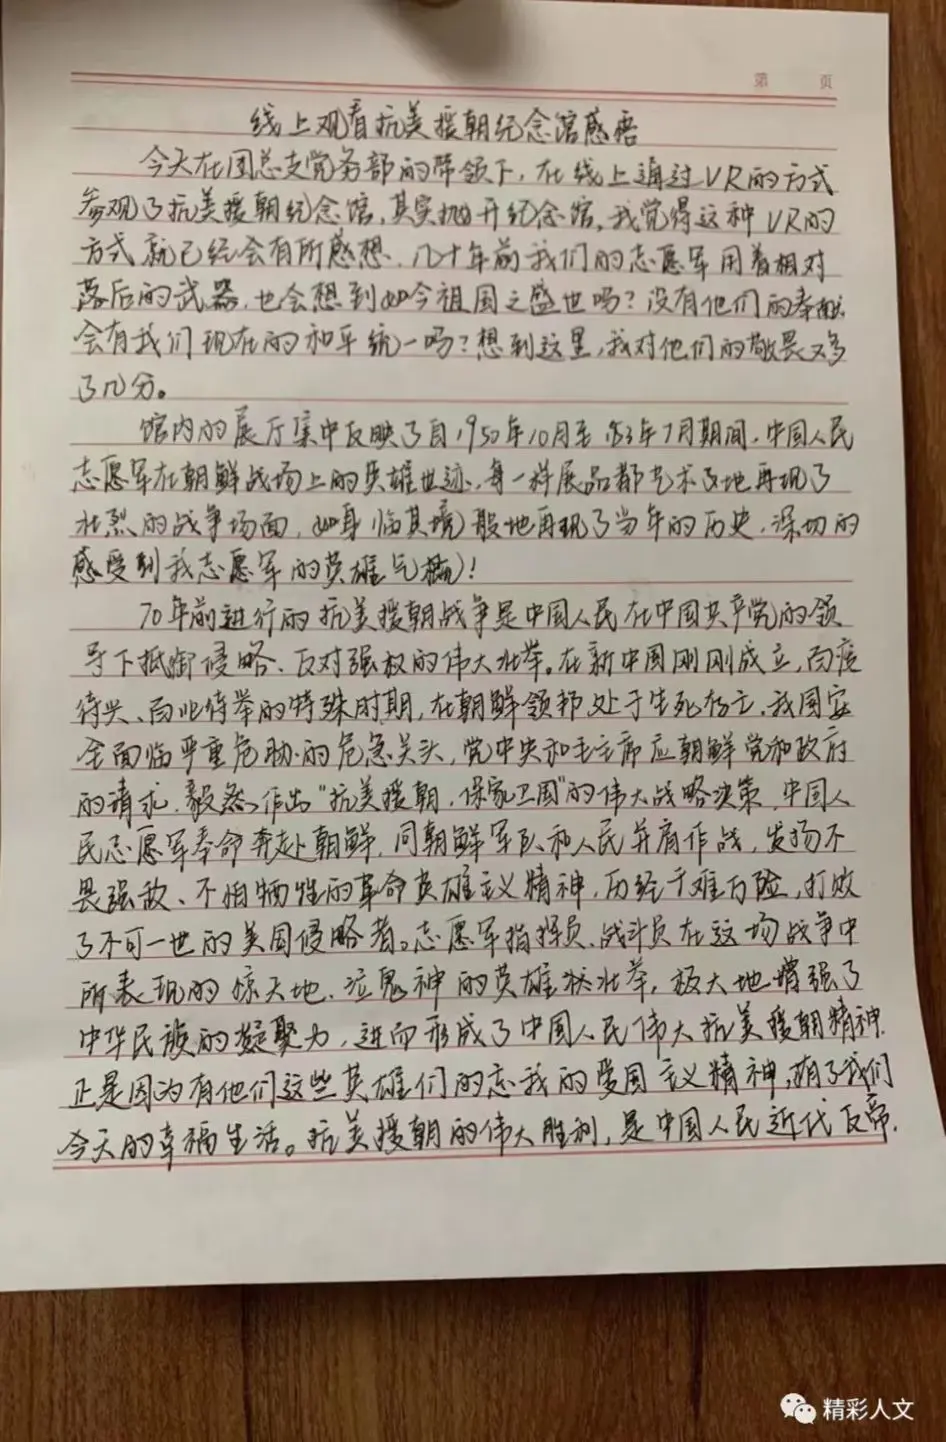 第 页
线上观看抗美援朝纪念馆感悟
今天在团总支党务部的带领下，在线上通过VR的方式
参观了抗美援朝纪念馆，其实抛开纪念馆，我觉得这种VR的
方式就已经会有所感想，几十年前我们的志愿军用着相对
落后的武器，也会想到如今祖国之盛世吗？没有他们的奉献，
会有我们现在的和平统一吗？想到这里，我对他们的敬畏又多
了几分。
馆内的展厅集中反映了自1950年10月至53年7月期间，中国人民
志愿军在朝鲜战场上的英雄世迹，每一样展品都艺术地再现了
壮烈的战争场面，如身临其境般地再现了当年的历史，深切的
感受到我志愿军的英雄气概！
70年前进行的抗美援朝战争是中国人民在中国共产党的领
导下抵御侵略、反对强权的伟大壮举。在新中国刚刚成立，百废
待兴、百业待举的特殊时期，在朝鲜领部处于生死存亡，我国安
全面临严重危胁的危急关头，党中央和毛主席应朝鲜党和政府
的请求，毅然作出“抗美援朝，保家卫国”的伟大战略决策，中国人
民志愿军奉命奔赴朝鲜，同朝鲜军队和人民并肩作战，发扬不
畏强敌、不怕牺牲的革命英雄主义精神，历经千难万险，打败
了不可一世的美国侵略者。志愿军指挥员、战斗员在这场战争中
所表现的惊天地、泣鬼神的英雄壮举，极大地增强了
中华民族的凝聚力，进而形成了中国人民伟大抗美援朝精神.
正是因为有他们这些英雄们的忘我的爱国主义精神，有了我们
今天的幸福生活。抗美援朝的伟大胜利，是中国人民近代反帝.
精彩人文